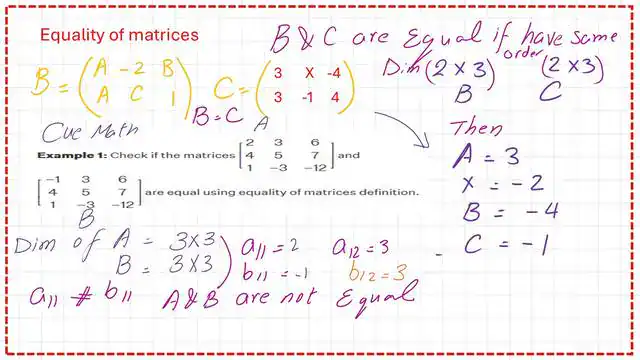 Equality of matrices
B & C are Equal if have same
order
B = ( A -2 B
A C 1 )
C = ( 3 x -4
3 -1 4 )
Dim (2 x 3) (2 x 3)
B C
B = C
Cue Math
A
Example 1: Check if the matrices [ 2 3 6
4 5 7
1 -3 -12 ] and
[ -1 3 6
4 5 7
1 -3 -12 ] are equal using equality of matrices definition.
B
Then
A = 3
x = -2
B = -4
C = -1
Dim of A = 3x3
B = 3x3
a11 = 2 a12 = 3
b11 = -1 b12 = 3
a11 ≠ b11 A & B are not Equal